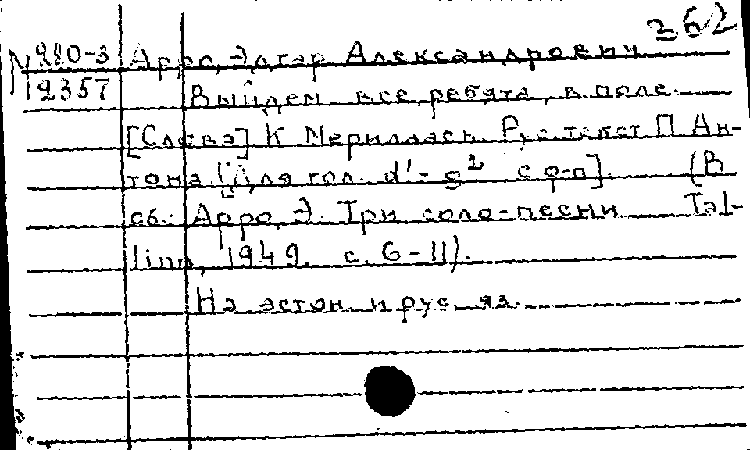 362
N 220-3 Арро, Эдгар Александрович
2357 Выйдем все ребята, в поле.
[Слова] К. Мерилласъ. Рус. текст П. Ан-
тона. [Для гол. d'- g² с ф-п]. (В
сб.: Арро, Э. Три соло-песни. Tal-
linn, 1949. с. 6-11).
На эстон. и рус. яз.